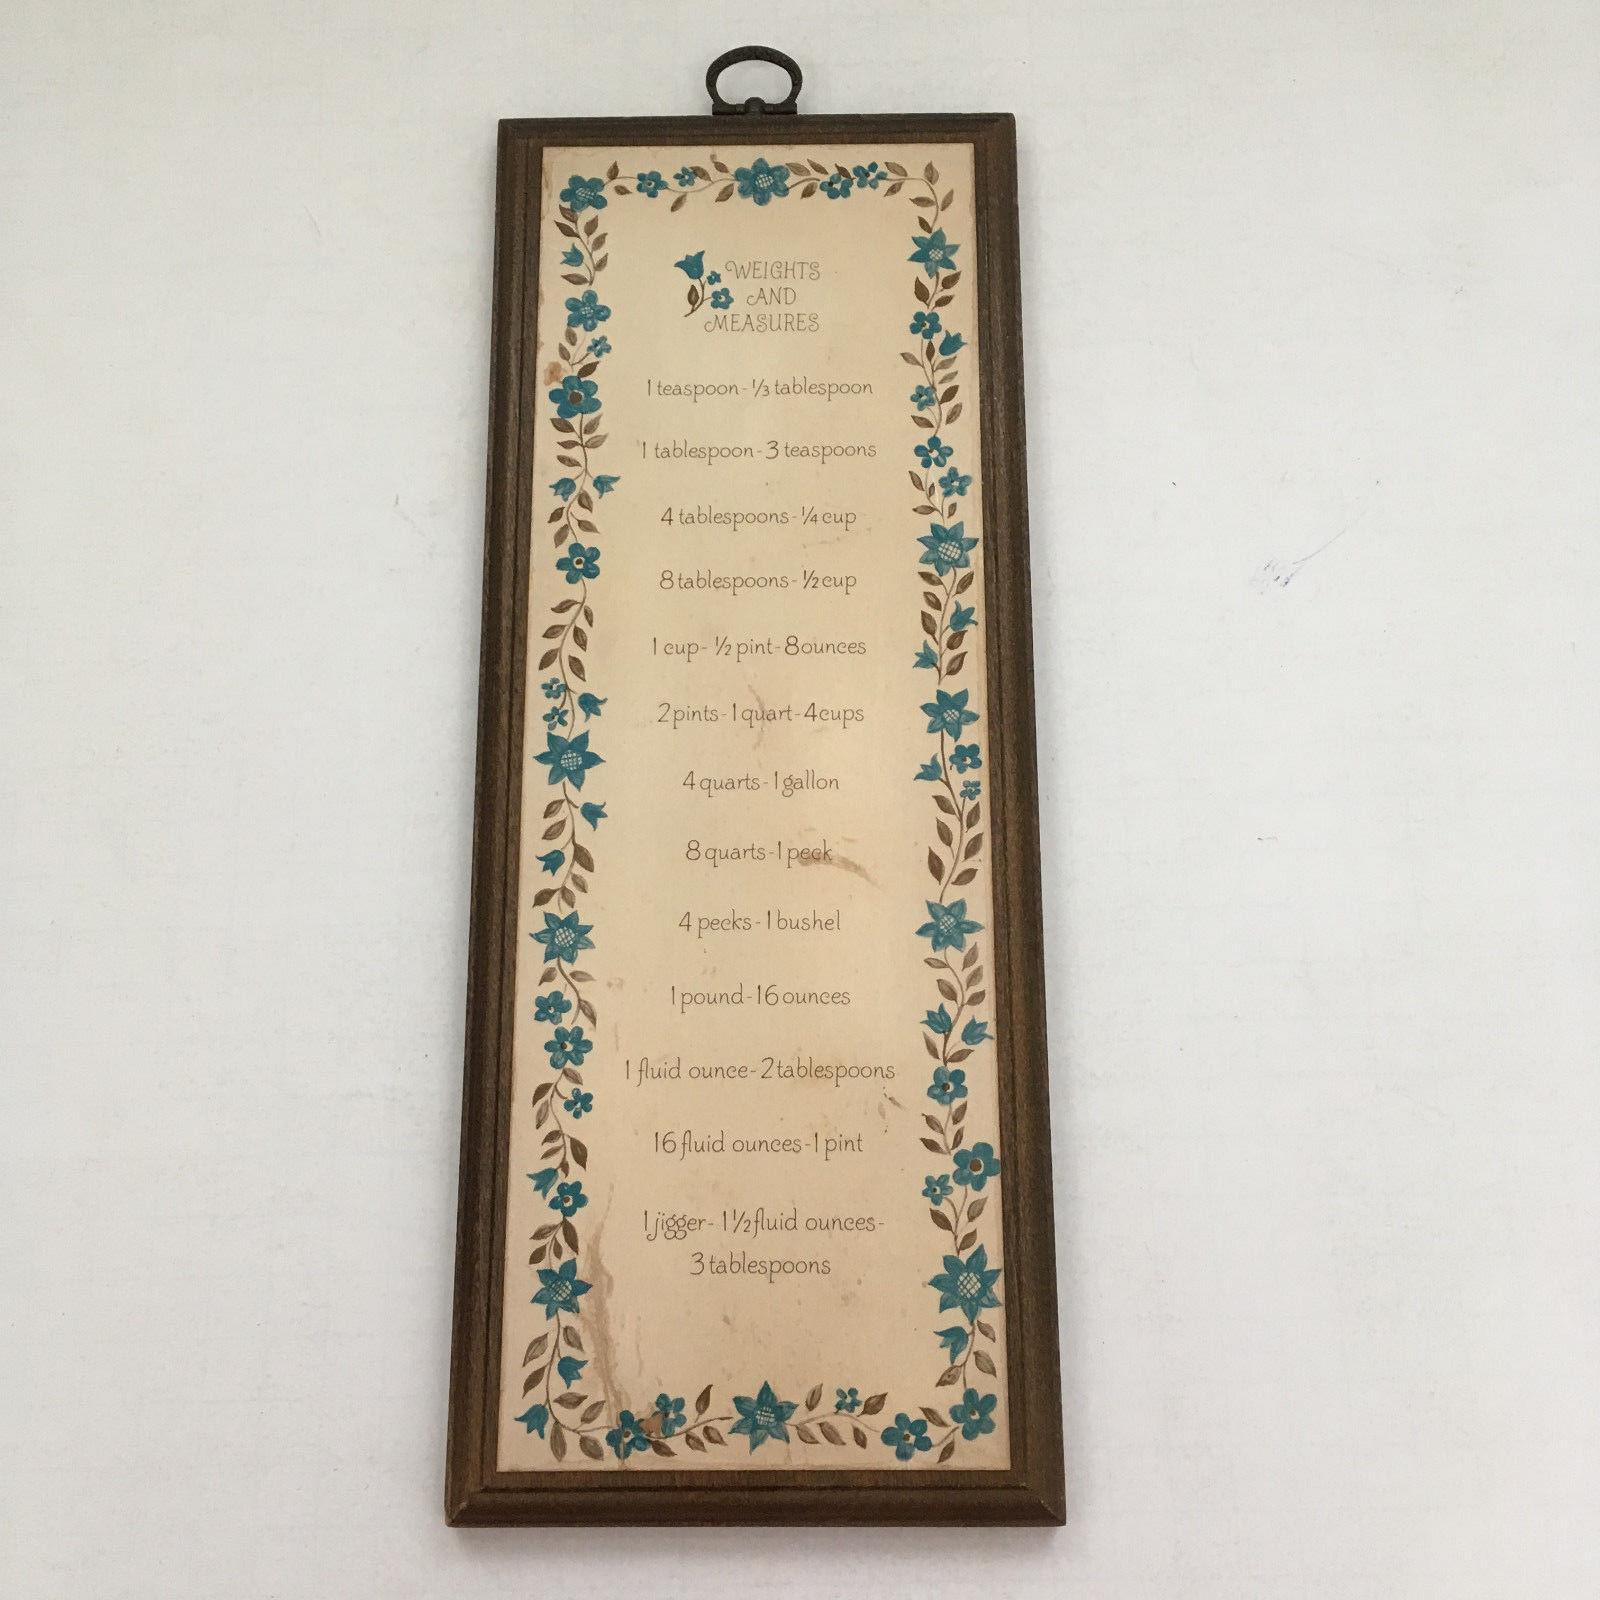 WEIGHTS
AND
MEASURES
1 teaspoon - 1/3 tablespoon
1 tablespoon - 3 teaspoons
4 tablespoons - 1/4 cup
8 tablespoons - 1/2 cup
1 cup - 1/2 pint - 8 ounces
2 pints - 1 quart - 4 cups
4 quarts - 1 gallon
8 quarts - 1 peck
4 pecks - 1 bushel
1 pound - 16 ounces
1 fluid ounce - 2 tablespoons
16 fluid ounces - 1 pint
1 jigger - 1 1/2 fluid ounces -
3 tablespoons